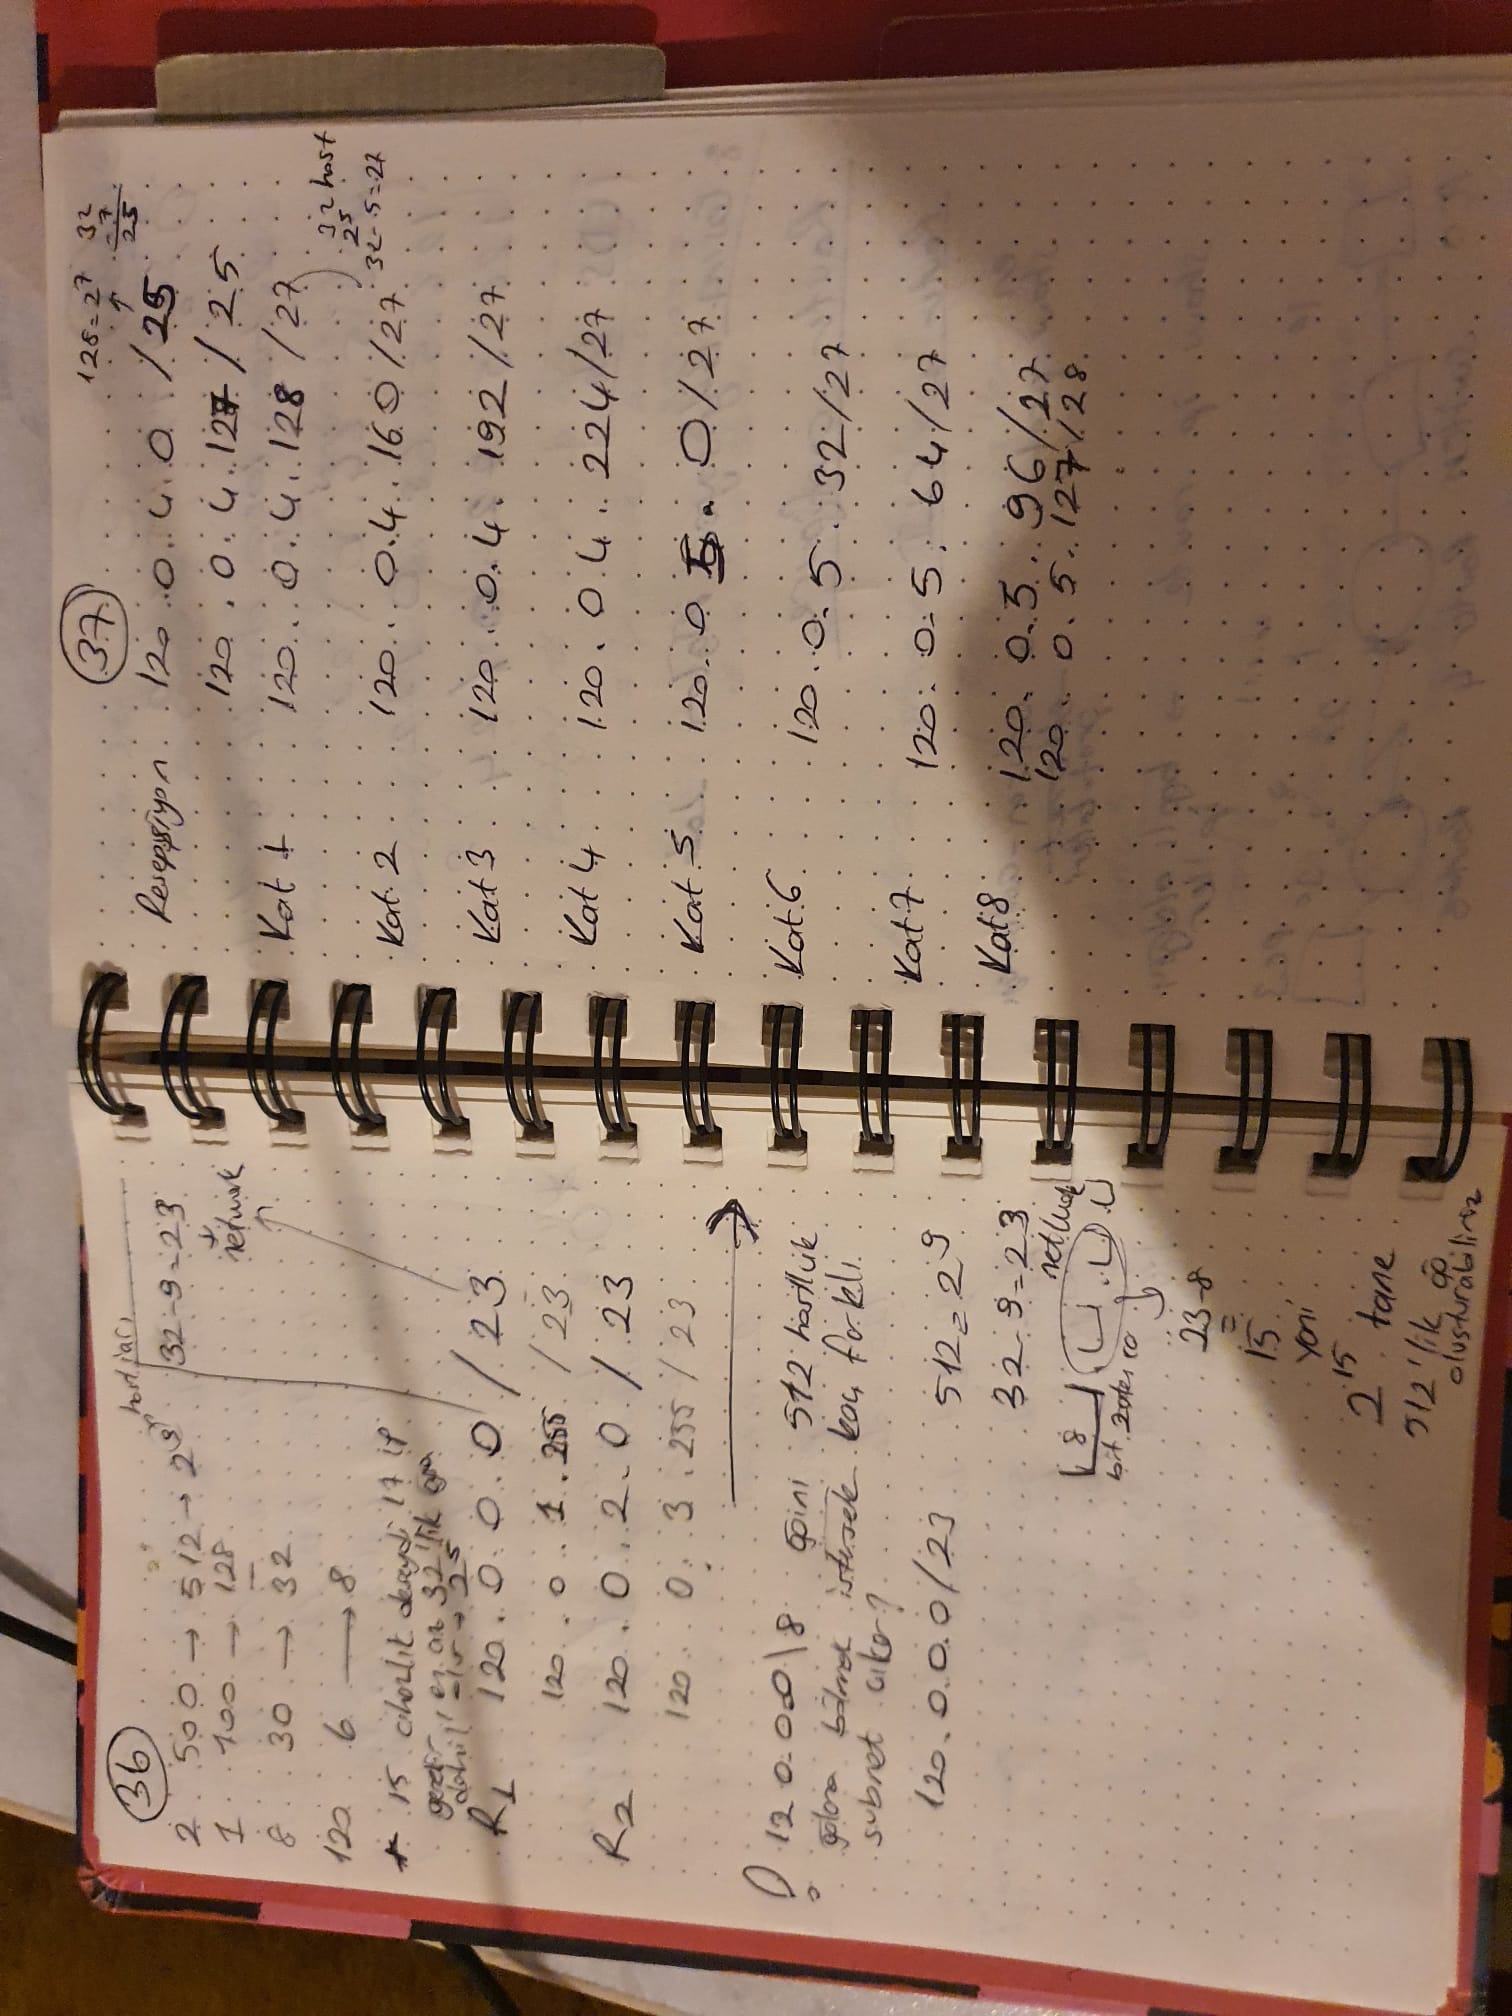 36
2 500 → 512 → 2^9 hostları
32-9=23
network
1 100 → 128
8 30 → 32
120 6 → 8
* 15 cihazlık deseydi 17 ip
gerekir, en az 32'lik ağa
dahil olur → 2^5
R1 120.0.0.0 / 23
120.0.1.255 / 23
R2 120.0.2.0 / 23
120.0.3.255 / 23
120.0.0\8 ağını 512 hostluk
ağlara bölmek istersek kaç farklı
subnet çıkar?
120.0.0.0/23 512=2^9
32-9=23
network
8
bit zaten
23-8
=
15
yani
2^15 tane
512'lik ağ
oluşturabiliriz
37
128=2^7 32
-7
25
Resepsiyon 120.0.4.0 /25
120.0.4.127 / 25
Kat 1 120.0.4.128 /27
32 host
2^5
32-5=27
Kat 2 120.0.4.160/27
Kat 3 120.0.4.192/27
Kat 4 120.0.4.224/27
Kat 5 120.0 5.0/27
Kat 6 120.0.5.32/27
Kat 7 120.0.5.64/27
Kat 8 120.0.5.96/27
120.0.5.127/28